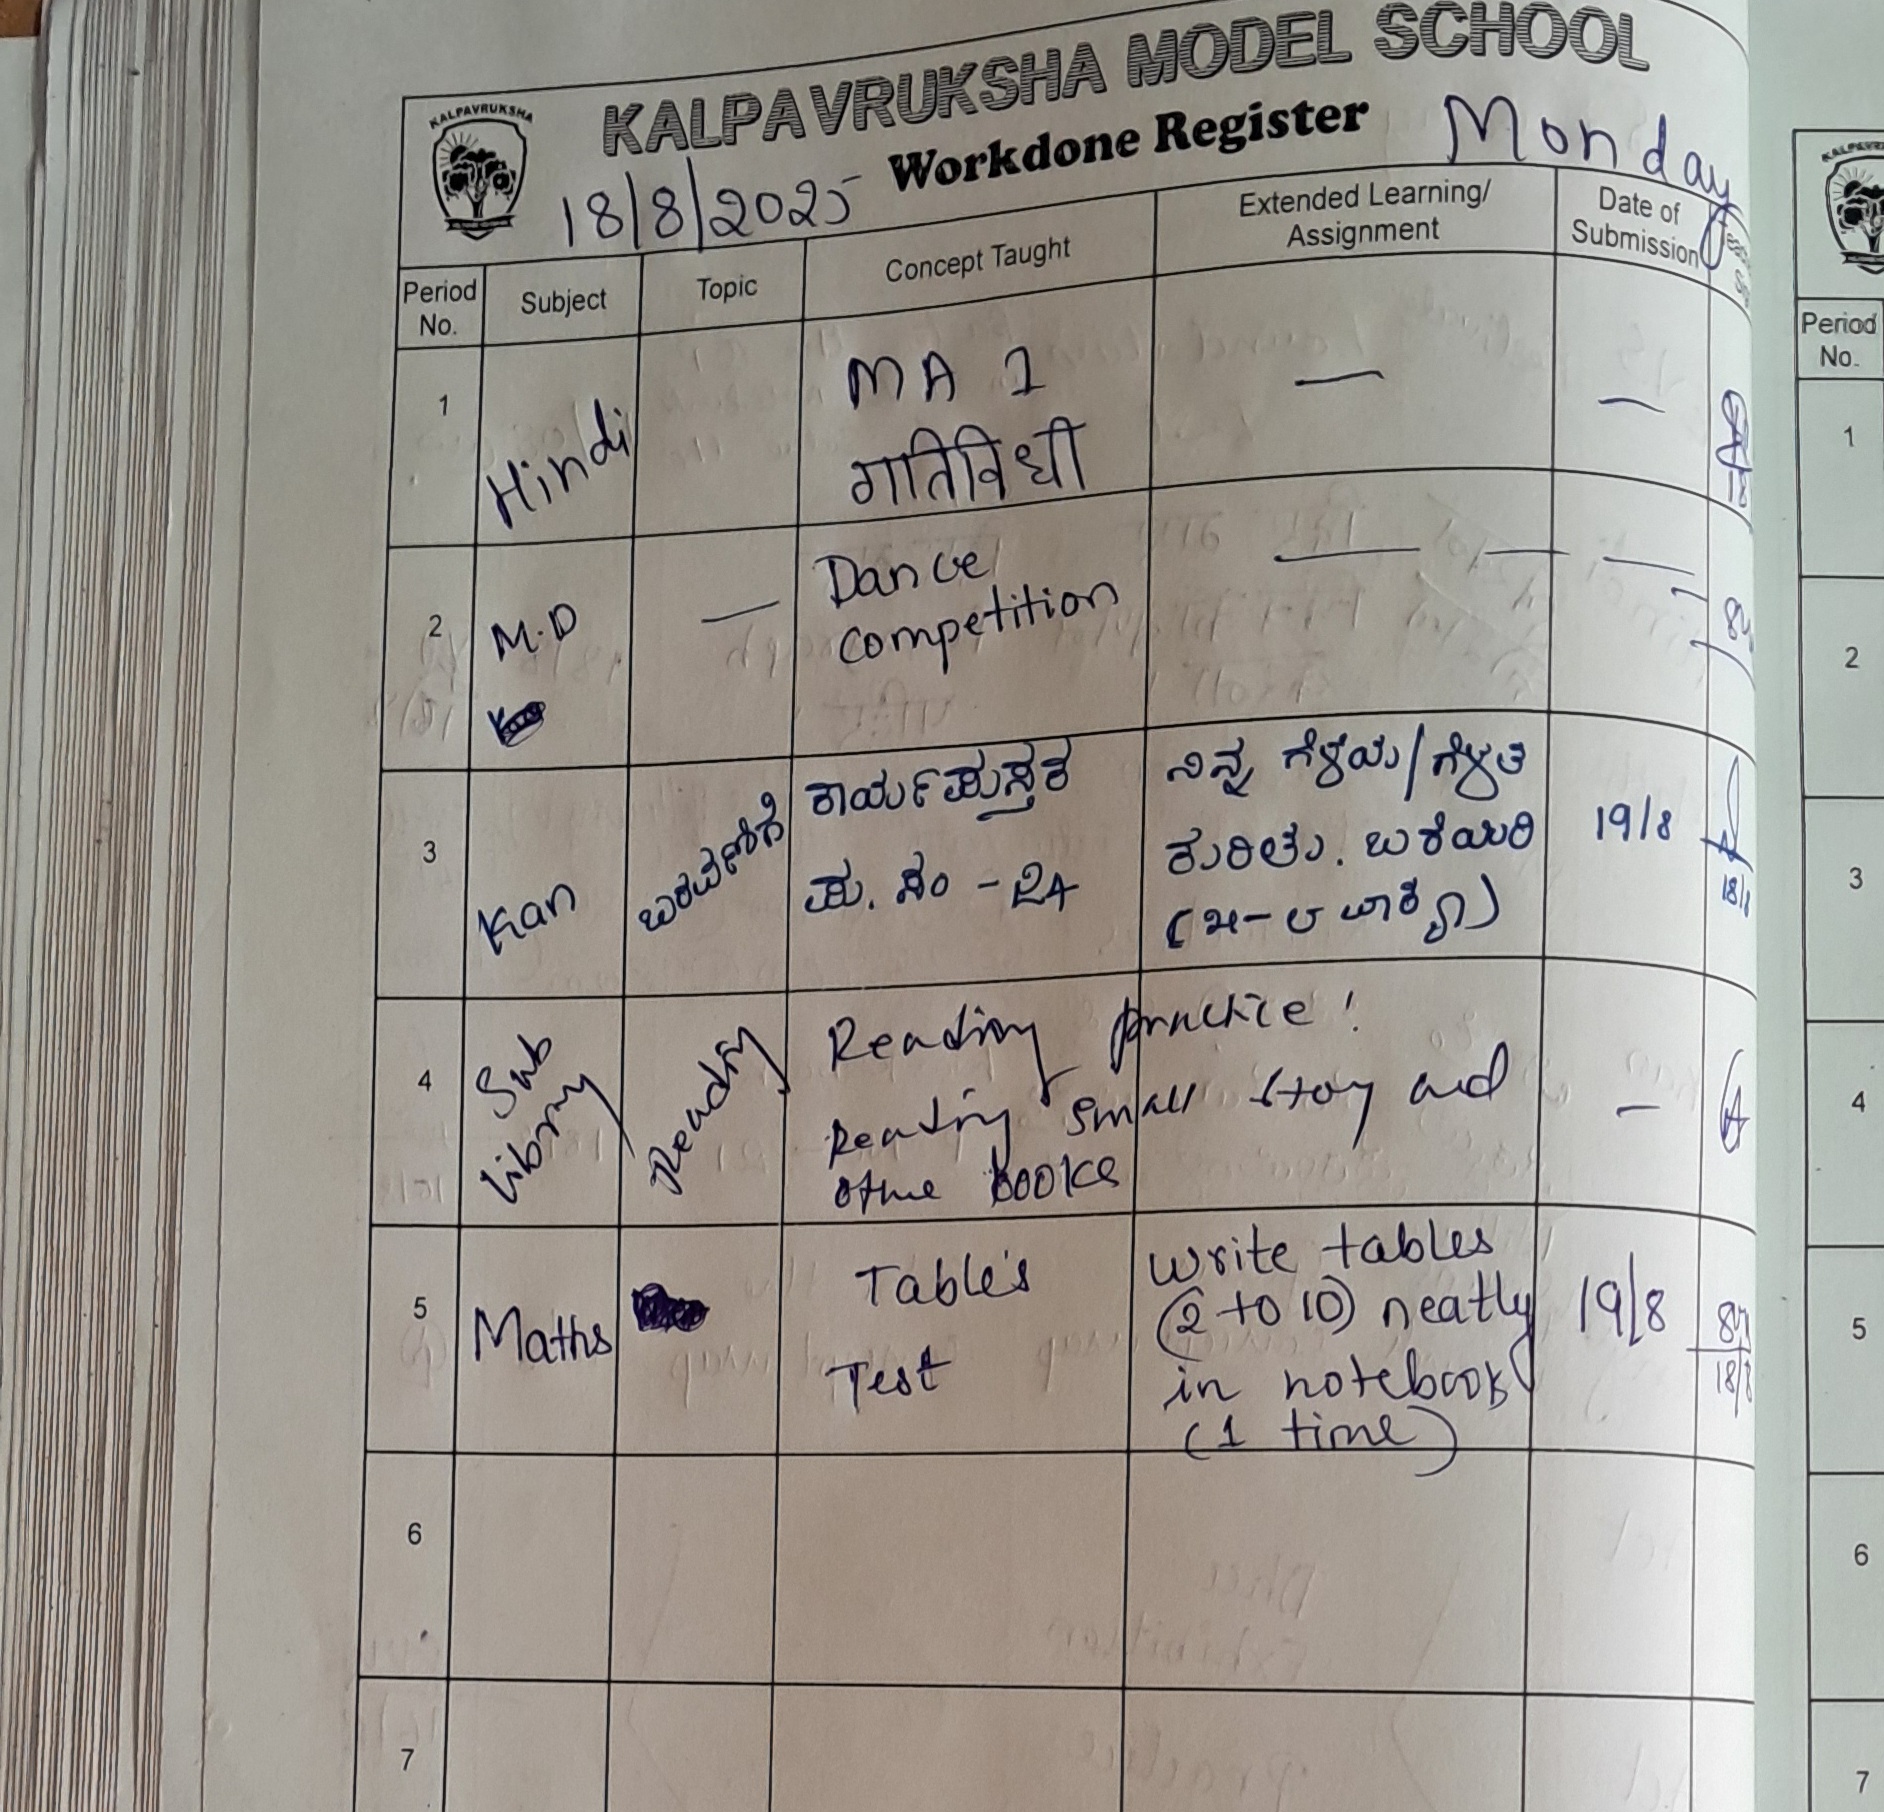 KALPAVRUKSHA MODEL SCHOOL
KALPAVRUKSHA
Workdone Register
Monday
18/8/2025
Period No.
Subject
Topic
Concept Taught
Extended Learning/
Assignment
Date of
Submission
1
Hindi
MA 1
गातिविधी
—
—
2
M.D
—
Dance
competition
—
—
3
Kan
ಬರವಣಿಗೆ
ಕಾರ್ಯಪುಸ್ತಕ
ಪು. ಸಂ - 24
ನಿನ್ನ ಗೆಳೆಯ/ಗೆಳತಿ
ಕುರಿತು. ಬರೆಯಿರಿ
19/8
18/8
4
Sub
Library
Reading
Reading practice!
Reading small story and
books
—
5
Maths
Table's
Test
Write tables
(2 to 10) neatly
in notebook
(1 time)
19/8
18/8
6
7
Period
No.
1
2
3
4
5
6
7